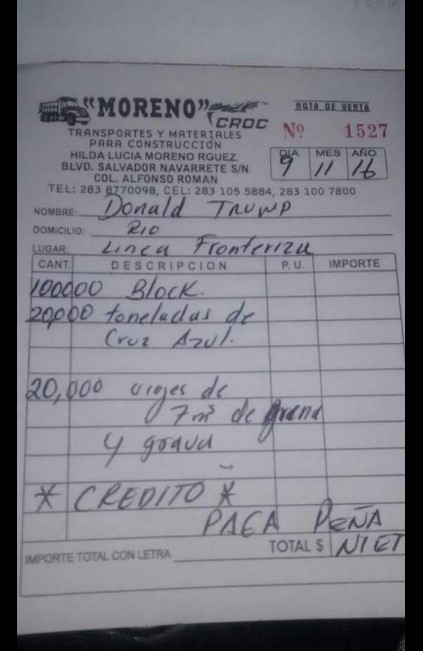 "MORENO"
CROC
NOTA DE VENTA
TRANSPORTES Y MATERIALES
PARA CONSTRUCCIÓN
Nº 1527
HILDA LUCIA MORENO RGUEZ.
BLVD. SALVADOR NAVARRETE S/N
COL. ALFONSO ROMAN
DIA MES AÑO
9 11 16
TEL: 283 8770098, CEL: 283 105 5884, 283 100 7800
NOMBRE: Donald Trump
DOMICILIO: Rio
LUGAR: Linea Fronteriza
CANT. DESCRIPCION P. U. IMPORTE
100000 Block.
20000 toneladas de
Cruz Azul.
20,000 viajes de
7m³ de arena
y grava
* CREDITO *
PAGA PEÑA
IMPORTE TOTAL CON LETRA TOTAL $ NIET